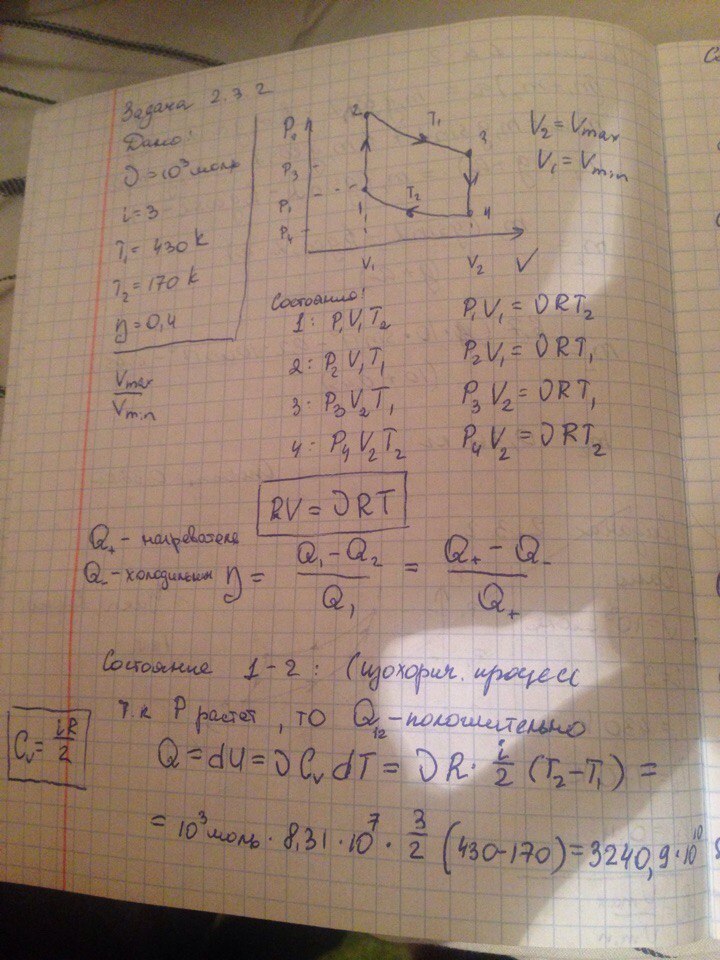 Задача 2.7 2
Дано:
ν=10³ моль
i=3
T₁=430 K
T₂=170 K
η=0,4
Vmax
Vmin
P₂
P₃
P₁
P₄
2
T₁
3
1
T₂
4
V₁
V₂
V
V₂=Vmax
V₁=Vmin
Состояние:
1: P₁V₁T₂ P₁V₁=νRT₂
2: P₂V₁T₁ P₂V₁=νRT₁
3: P₃V₂T₁ P₃V₂=νRT₁
4: P₄V₂T₂ P₄V₂=νRT₂
PV=νRT
Q₊ - нагревателя
Q₋ - холодильник
η = (Q₁-Q₂)/Q₁ = (Q₊-Q₋)/Q₊
Состояние 1-2: (изохорич. процесс
т.к P растет, то Q₁₂-положительно
Cᵥ=iR/2
Q=dU=νCᵥdT=νR·i/2 (T₂-T₁)=
=10³моль·8,31·10⁷·3/2 (430-170)=3240,9·10¹⁰